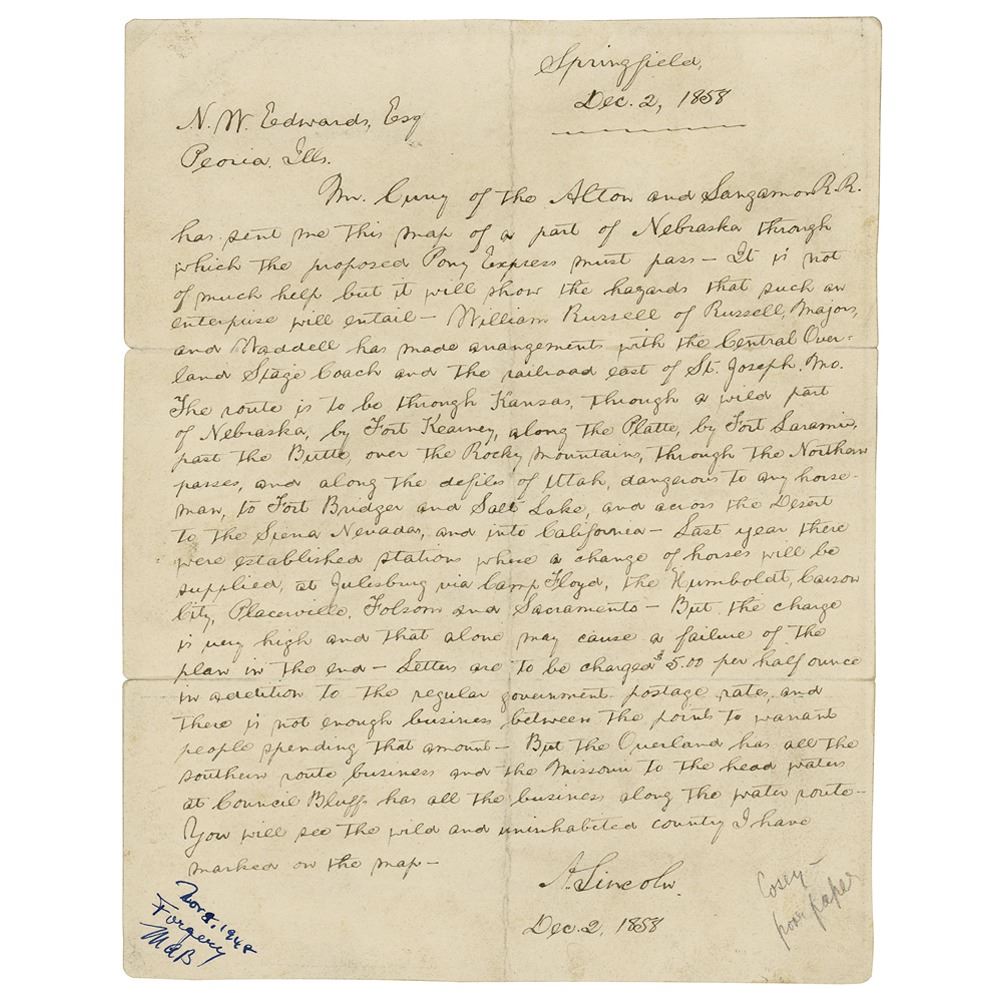 Springfield,
Dec. 2, 1858
N. W. Edwards, Esq
Peoria, Ills.
Mr. Curry of the Alton and Sangamon R.R.
has sent me this map of a part of Nebraska through
which the proposed Pony Express must pass — It is not
of much help but it will show the hazards that such an
enterprise will entail — William Russell of Russell, Majors,
and Waddell has made arrangements with the Central Over-
land Stage Coach and the railroad east of St. Joseph. Mo.
The route is to be through Kansas, through a wild part
of Nebraska, by Fort Kearney, along the Platte, by Fort Laramie,
past the Butte, over the Rocky Mountains, through the Northern
passes, and along the defiles of Utah, dangerous to any horse-
man, to Fort Bridger and Salt Lake, and across the Desert
to the Sierra Nevadas, and into California — Last year there
were established stations where a change of horses will be
supplied, at Julesburg via Camp Floyd, the Humboldt, Carson
City, Placerville, Folsom and Sacramento — But the charge
is very high and that alone may cause a failure of the
plan in the end — Letters are to be charged $5.00 per half ounce
in addition to the regular government postage rates, and
there is not enough business between the points to warrant
people spending that amount — But the Overland has all the
southern route business and the Missouri to the head waters
at Council Bluffs has all the business along the water route —
You will see the wild and uninhabited country I have
marked on the map —
A. Lincoln.
Dec. 2, 1858
Nov 8, 1948
Forgery
MaB
Cosey —
poor paper